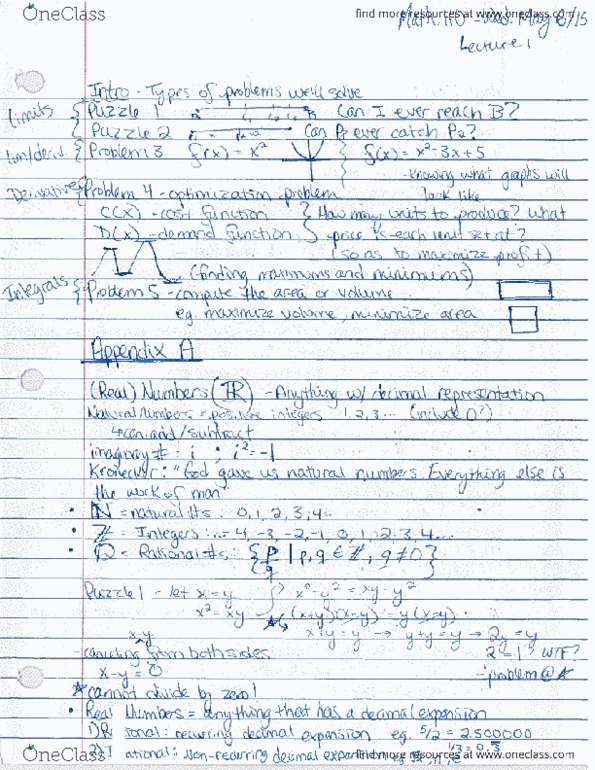 OneClass
find more resources at www.oneclass.com
Math 110 - Wed. May 6/15
Lecture 1
Intro - Types of problems we'll solve
Limits { Puzzle 1 Can I ever reach B?
Puzzle 2 Can P1 ever catch P2?
lim/deriv. { Problem 3 f(x) = x² f(x) = x²-3x+5
- knowing what graphs will
look like
Derivatives { Problem 4 - optimization problem
C(x) - cost function } How many units to produce? What
D(x) - demand function } price is each unit set at?
(so as to maximize profit)
(finding maximums and minimums)
Integrals { Problem 5 - compute the area or volume
eg. maximize volume, minimize area
Appendix A
(Real) Numbers (ℝ) - Anything w/ decimal representation
Natural Numbers = positive integers 1, 2, 3... (include 0?)
↳ can add/subtract
imaginary #: i ; i² = -1
Kronecker: "God gave us natural numbers. Everything else is
the work of man"
• ℕ = natural #s: 0, 1, 2, 3, 4...
• ℤ = Integers: ...-4, -3, -2, -1, 0, 1, 2, 3, 4...
• ℚ = Rational #s: {p/q | p, q ∈ ℤ, q ≠ 0}
Puzzle 1 - let x = y x²-y² = xy-y²
x² = xy (x+y)(x-y) = y(x-y)
x+y = y → y+y = y → 2y = y
- canceling from both sides 2 = 1 WTF?
x-y = 0 - problem @ ★
★ cannot divide by zero!
• Real Numbers = anything that has a decimal expansion
ational: recurring decimal expansion eg. 5/2 = 2.500000
1/3 = 0.3
ational: Non-recurring decimal expansion
OneClass
find more resources at www.oneclass.com